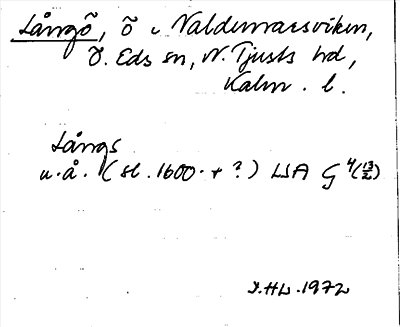 Långö, ö i Valdemarsviken,
Ö. Eds sn, N. Tjusts hd,
Kalm. l.
Långs
u.å. (sl. 1600-t ?) LSA G 4(13/2)
I.HL. 1972